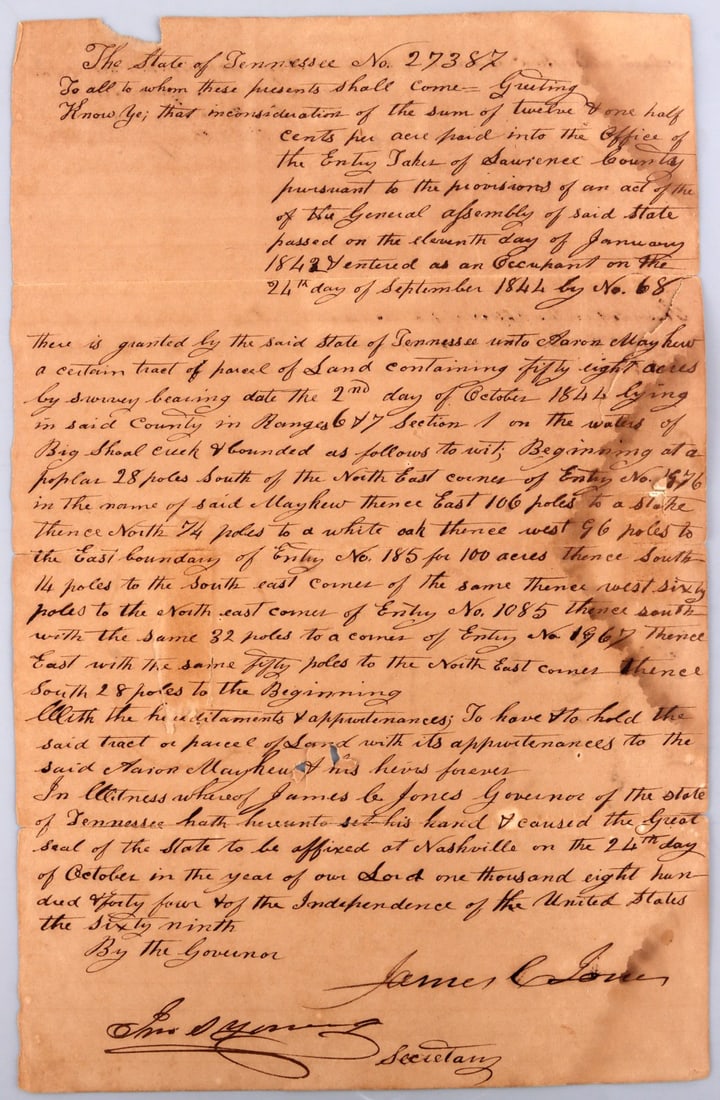 The State of Tennessee No. 27387
To all to whom these presents shall come = Greeting
Know Ye; that inconsideration of the sum of twelve & one half
cents per acre paid into the Office of
the Entry Taker of Lawrence County
pursuant to the provisions of an act of the
of the General assembly of said state
passed on the eleventh day of January
1842 & entered as an Occupant on the
24th day of September 1844 by No. 68
there is granted by the said state of Tennessee unto Aaron Mayhew
a certain tract of parcel of Land containing fifty eight acres
by survey bearing date the 2nd day of October 1844 lying
in said County in Ranges 6 & 7 Section 1 on the waters of
Big Shoal creek & bounded as follows to wit; Beginning at a
poplar 28 poles South of the North East corner of Entry No.
in the name of said Mayhew thence East 106 poles to a stake
thence North 74 poles to a white oak thence west 96 poles to
the East boundary of Entry No. 185 for 100 acres thence South
14 poles to the south east corner of the same thence west sixty
poles to the North east corner of Entry No. 1085 thence south
with the same 32 poles to a corner of Entry No 1967 thence
East with the same fifty poles to the North East corner thence
South 28 poles to the Beginning
With the hereditaments & appurtenances; To have & to hold the
said tract or parcel of Land with its appurtenances to the
said Aaron Mayhew & his heirs forever
In Witness whereof James C Jones Governor of the state
of Tennessee hath hereunto set his hand & caused the Great
seal of the State to be affixed at Nashville on the 24th day
of October in the year of our Lord one thousand eight hun-
dred & forty four & of the Independence of the United States
the sixty ninth
By the Governor
James C Jones
Jno S Young
Secretary